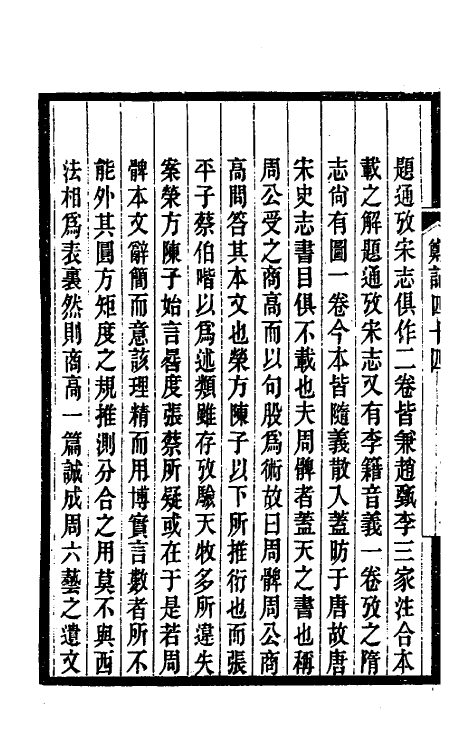 題通攷宋志俱作二卷皆兼趙甄李三家注合本
載之解題通攷宋志又有李籍音義一卷攷之隋
志尙有圖一卷今本皆隨義散入蓋昉于唐故唐
宋史志書目俱不載也夫周髀者蓋天之書也稱
周公受之商高而以句股爲術故曰周髀周公商
高問答其本文也榮方陳子以下所推衍也而張
平子蔡伯喈以爲述類雖存攷驗天狀多所違失
案榮方陳子始言晷度張蔡所疑或在于是若周
髀本文辭簡而意該理精而用博實言數者所不
能外其圓方矩度之規推測分合之用莫不與西
法相爲表裏然則商高一篇誠成周六藝之遺文
鄭記四十四